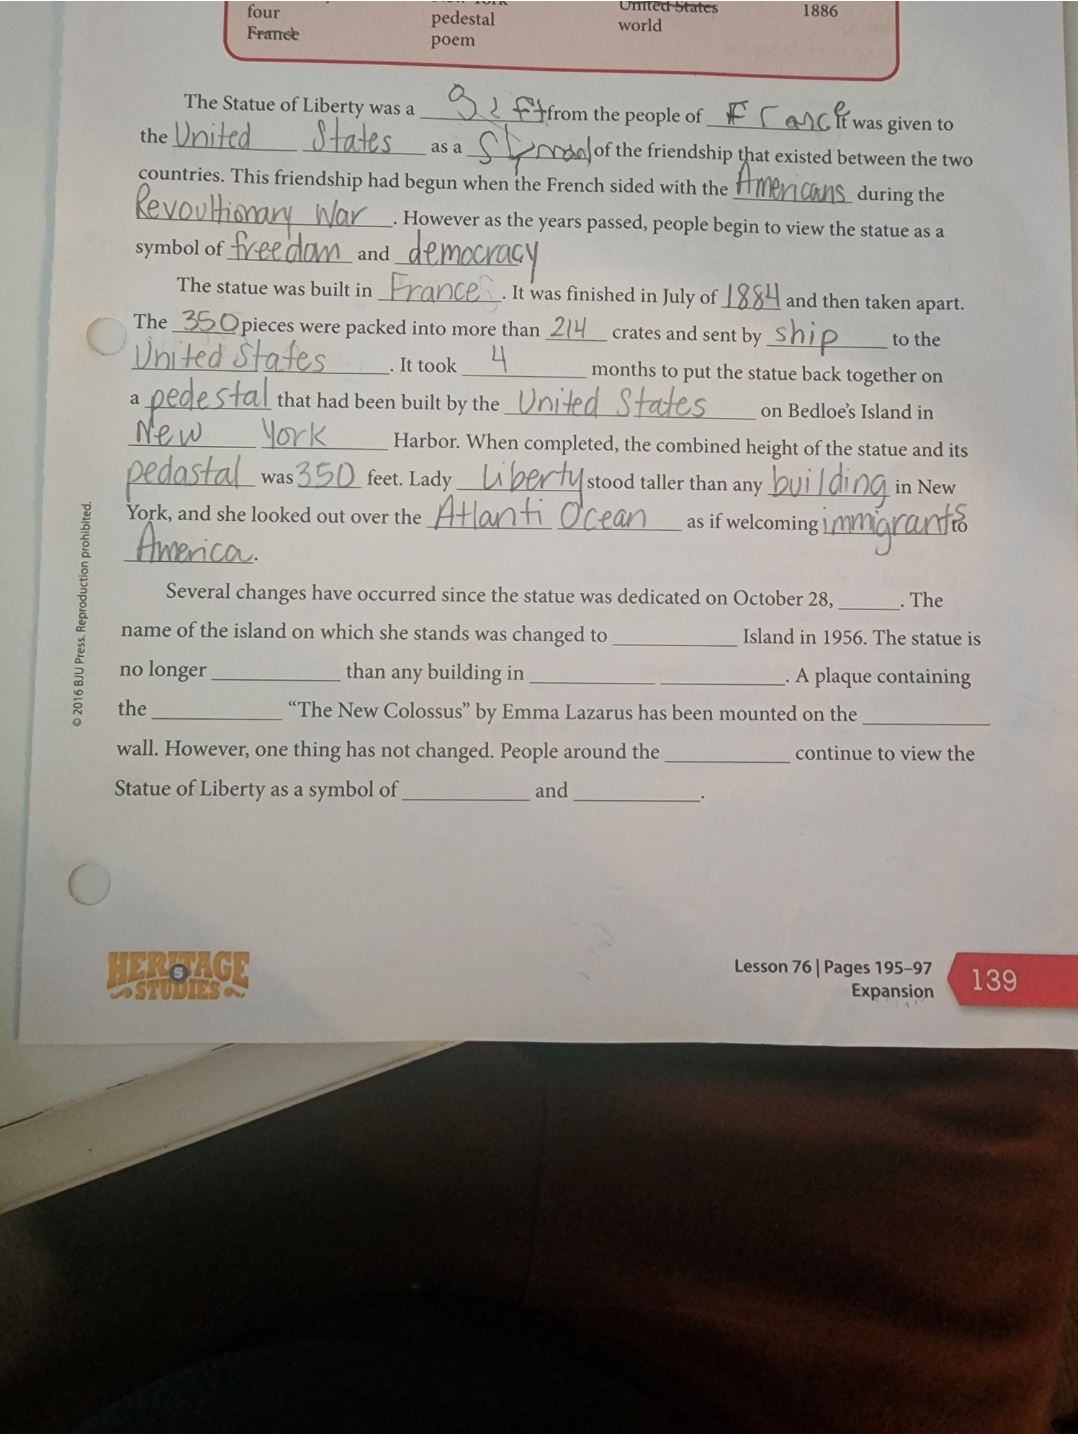 four
France
pedestal
poem
United States
world
1886
The Statue of Liberty was a gift from the people of France It was given to
the United States as a of the friendship that existed between the two
countries. This friendship had begun when the French sided with the Americans during the
Revoultionary War. However as the years passed, people begin to view the statue as a
symbol of freedom and democracy
The statue was built in France. It was finished in July of 1884 and then taken apart.
The 350 pieces were packed into more than 214 crates and sent by ship to the
United States. It took 4 months to put the statue back together on
a pedestal that had been built by the United States on Bedloe's Island in
New York Harbor. When completed, the combined height of the statue and its
pedastal was 350 feet. Lady Liberty stood taller than any building in New
York, and she looked out over the Atlanti Ocean as if welcoming immigrants to
America.
Several changes have occurred since the statue was dedicated on October 28, ______. The
name of the island on which she stands was changed to ____________ Island in 1956. The statue is
no longer ____________ than any building in ____________ ____________. A plaque containing
the ____________ "The New Colossus" by Emma Lazarus has been mounted on the ____________
wall. However, one thing has not changed. People around the ____________ continue to view the
Statue of Liberty as a symbol of ____________ and ____________.
© 2016 BJU Press. Reproduction prohibited.
HERITAGE
5
STUDIES
Lesson 76 | Pages 195–97
Expansion
139